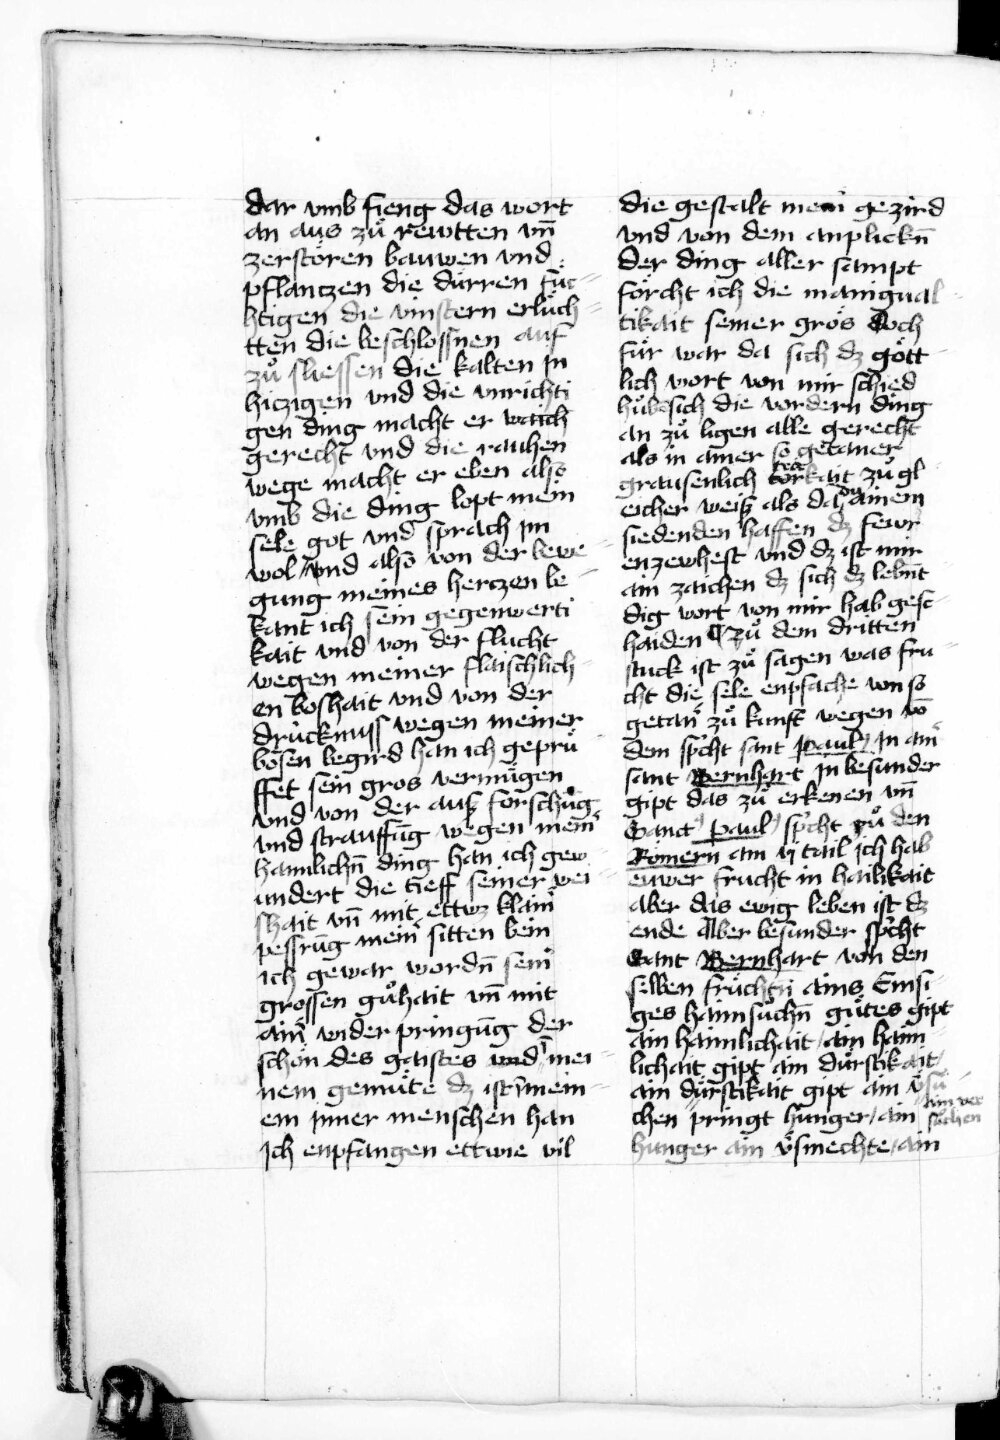 dar vmb fieng das wort
an aus zuͦ rewtten vn̄
zerstören bauwen vnd
pflantzen die dürren füc
htigen die vinstern erlüch
tten die beschlossnen auf
zuͦ sliessen die kalten in
hiczigen vnd die vnrichti
gen ding macht er waich
gerecht vnd die rauhen
wege macht er eben also
vmb die ding lopt mein
sele got vnd sprach im
wol vnd also von der bewe
gung meines herczen be
kant ich sein gegenwerti
kait vnd von der flucht
wegen meiner flaischlich
en boshait vnd von der
druckmuss wegen meiner
bösen begird han ich geprü
ffet sein gros vermügen
vnd von der aus forschūg
vnd strauffūg wegen mein̄
haimlichn̄ ding han ich gew
undert die tieff seiner wei
shait vn̄ mit ettwz klain
pessrūg mein̄ sitten bein
ich gewar wordn̄ sein̄
grossen guͦhait vn̄ mit
ain̄ vnderpringūg der
schön des gaistes vnd mei
nem gemüte dz ist mein
em inner menschen han
ich enpfangen ettwie vil
die gestalt mein̄ gezird
vnd von dem anplickn̄
der ding aller sampt
förcht ich die manigual
tikait seiner grös doch
für war da sich dz gött
lich wort von mir schied
huͦb sich die vordern ding
an zuͦ ligen alle gerecht
als in ainer so getaner
grausenlich törkait zuͦ gl
eicher weiß als da du ainem
siedenden haffen dz fewr
enzewhest vnd dz ist mir
ain zaichen dz sich dz lebn̄t
dig wort von mir hab gesc
haiden ¶ Zuͦ dem dritten
stuck ist zuͦ sagen was fru
cht die sele enpfache von so
getan̄ zuͦ kunft wegen vō
dem spͥcht sant paul in ain̄
sant Bernhart in besunder
gipt das zuͦ erkenen vn̄
Sanct paul spͥcht zuͦ den
Römern am vj tail ich hab
euwer frucht in hailikait
aber das ewig leben ist dz
ende Aber besunder spͥcht
Sant Bernhart von den
selben früchtn̄ ains Emsi
ges haimsuͦchn̄ guͦtes gipt
ain haimlichait / ain haim
lichait gipt ain dürstikait /
ain dürstikait gipt ain v̈suͦ
chen pringt hunger / ain
hunger ain v̈smechte / ain